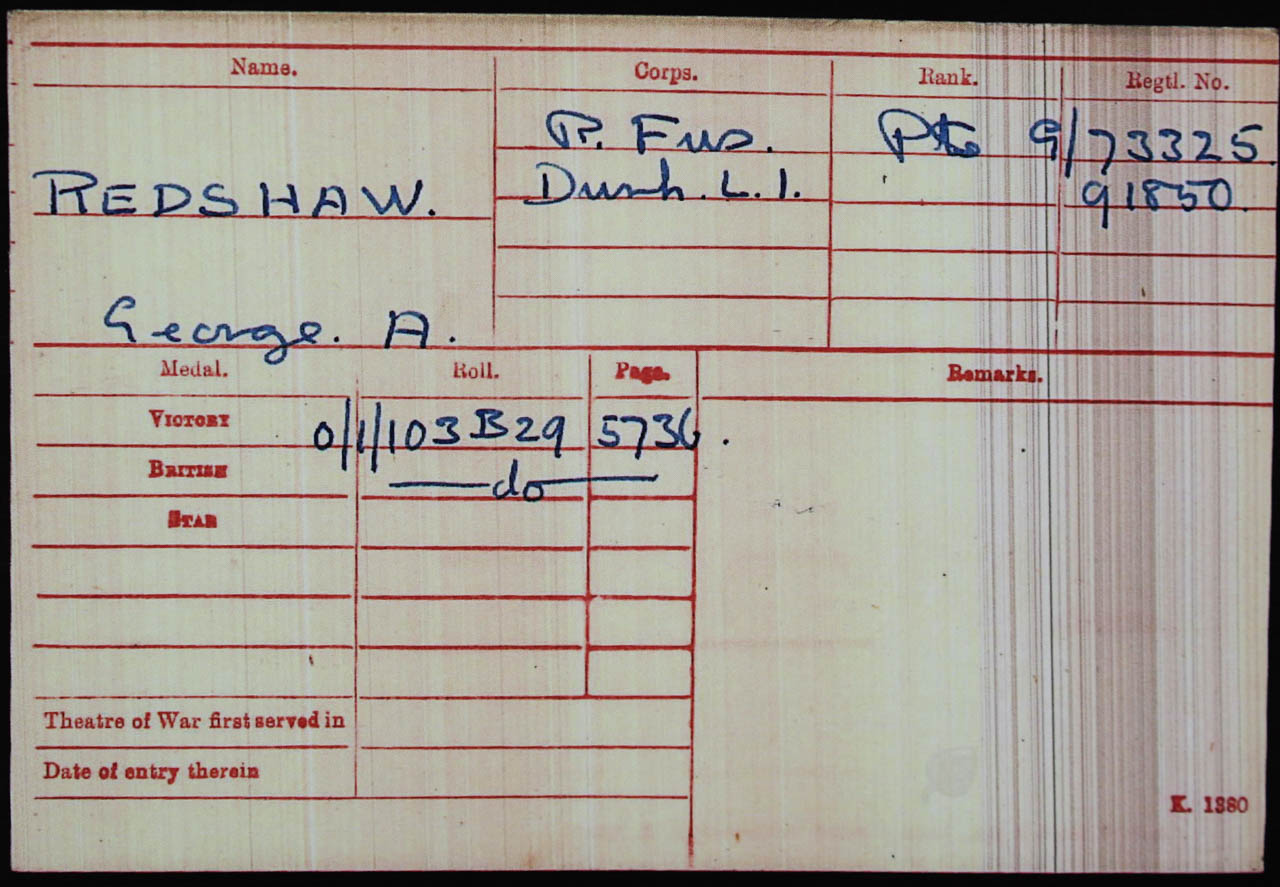 Name. Corps. Rank. Regtl. No.
R. Fus. Pte G/73325.
REDSHAW. Durh. L.I. 91850.
George. A.
Medal. Roll. Page. Remarks.
VICTORY 0/1/103 B29 5736.
BRITISH — do —
STAR
Theatre of War first served in
Date of entry therein
K. 1380